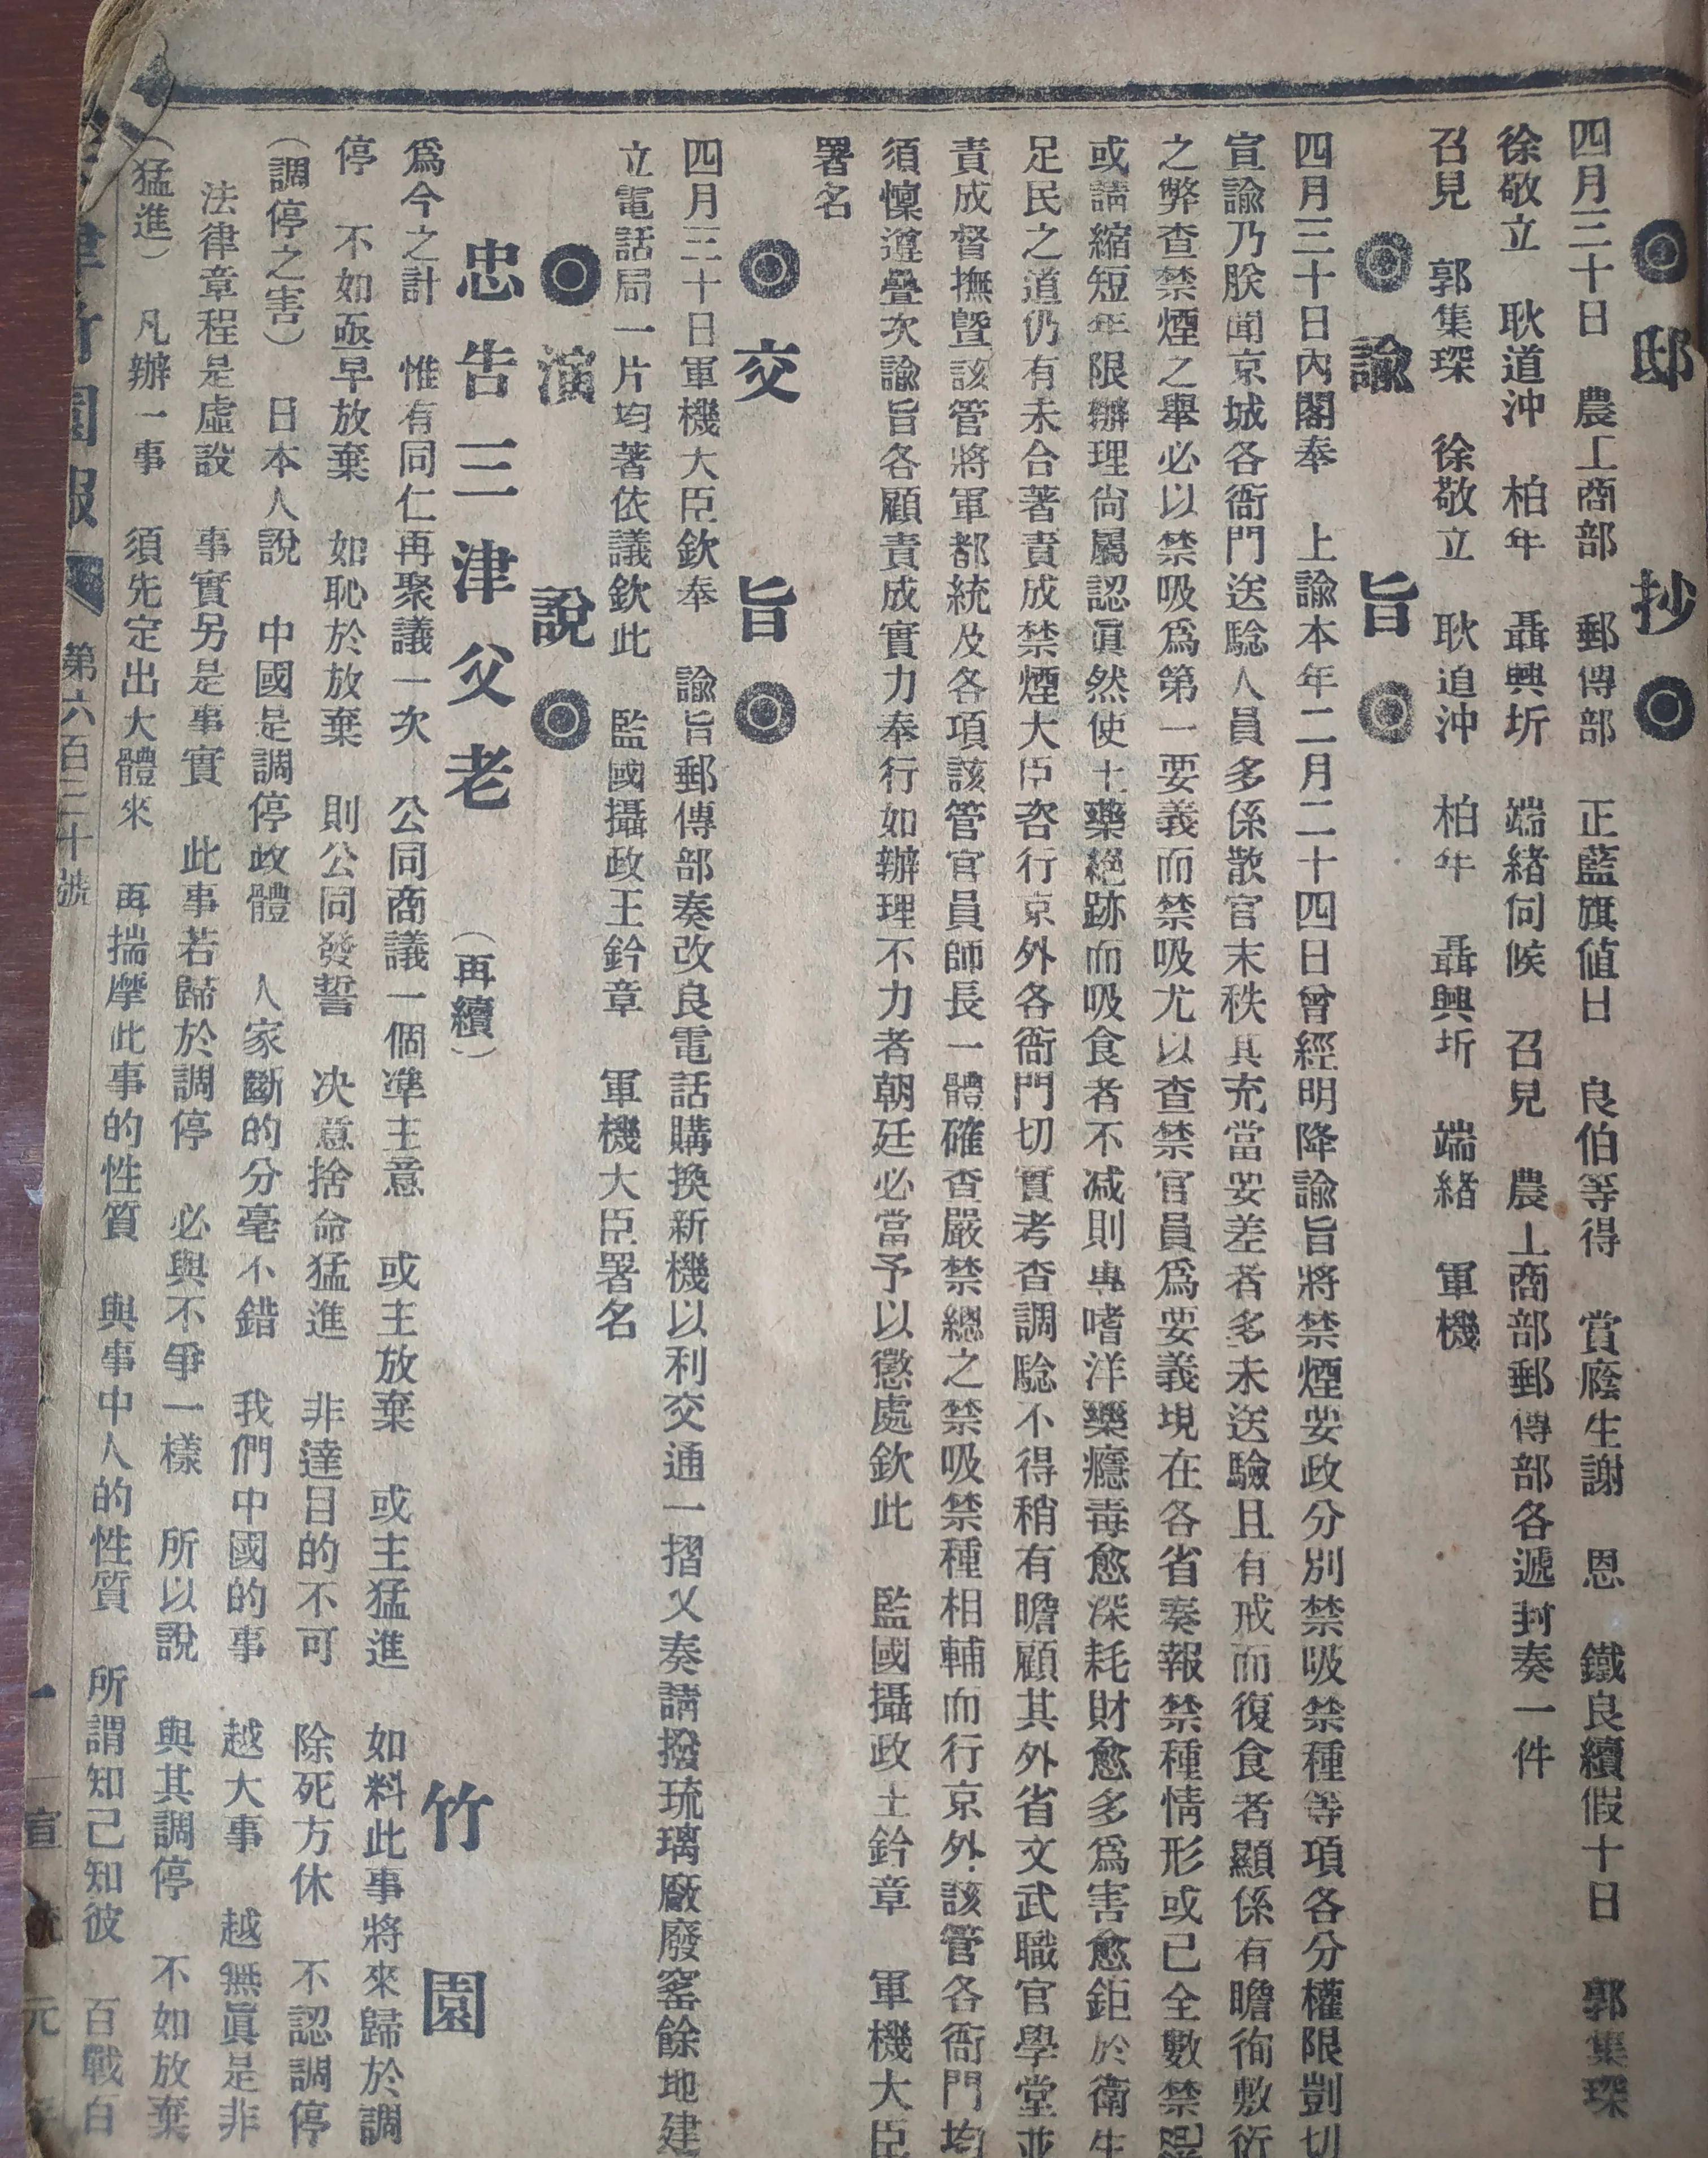 ◎邸抄◎
四月三十日 農工商部 郵傳部 正藍旗値日 良伯等得 賞廕生謝 恩 鐵良續假十日 郭集琛
徐敬立 耿道沖 柏年 聶興圻 端緒伺候 召見 農工商部郵傳部各遞封奏一件
召見 郭集琛 徐敬立 耿道沖 柏年 聶興圻 端緒 軍機
◎諭旨◎
四月三十日內閣奉 上諭本年二月二十四日曾經明降諭旨將禁煙要政分別禁吸禁種等項各分權限剴切
宣諭乃朕聞京城各衙門送騐人員多係散官末秩其充當要差者多未送驗且有戒而復食者顯係有瞻徇敷衍
之弊查禁煙之舉必以禁吸爲第一要義而禁吸尤以查禁官員爲要義現在各省奏報禁種情形或已全數禁
或請縮短年限辦理尙屬認眞然使土藥絕跡而吸食者不减則專嗜洋藥癮毒愈深耗財愈多爲害愈鉅於衛生
足民之道仍有未合著責成禁煙大臣咨行京外各衙門切實考查調騐不得稍有瞻顧其外省文武職官學堂並
責成督撫曁該管將軍都統及各項該管官員師長一體確查嚴禁總之禁吸禁種相輔而行京外該管各衙門均
須懍遵疊次諭旨各顧責成實力奉行如辦理不力者朝廷必當予以懲處欽此 監國攝政王鈐章 軍機大臣
署名
◎交旨◎
四月三十日軍機大臣欽奉 諭旨郵傳部奏改良電話購換新機以利交通一摺又奏請撥琉璃廠廢窰餘地建
立電話局一片均著依議欽此 監國攝政王鈐章 軍機大臣署名
◎演說◎
忠告三津父老 (再續) 竹園
爲今之計 惟有同仁再聚議一次 公同商議一個準主意 或主放棄 或主猛進 如料此事將來歸於調
停 不如亟早放棄 如恥於放棄 則公同發誓 决意捨命猛進 非達目的不可 除死方休 不認調停
(調停之害) 日本人說 中國是調停政體 人家斷的分毫不錯 我們中國的事 越大事 越無眞是非
法律章程是虛設 事實另是事實 此事若歸於調停 必與不爭一樣 所以說 與其調停 不如放棄
(猛進) 凡辦一事 須先定出大體來 再揣摩此事的性質 與事中人的性質 所謂知己知彼 百戰百
津竹園報 第六百三十號 一 宣統元年